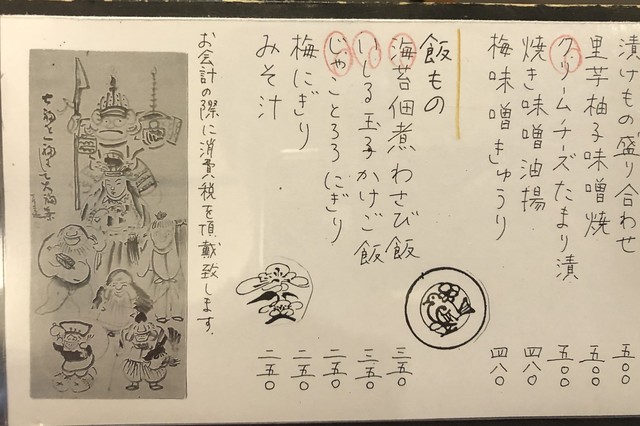 漬けもの盛り合わせ 五〇〇
里芋柚子味噌焼 五〇〇
クリームチーズたまり漬 五〇〇
焼き味噌油揚 四八〇
梅味噌きゅうり 四八〇
飯もの
海苔佃煮わさび飯 三五〇
いしる玉子かけご飯 三五〇
じゃことろろにぎり 二五〇
梅にぎり 二五〇
みそ汁 二五〇
お会計の際に消費税を頂戴致します。